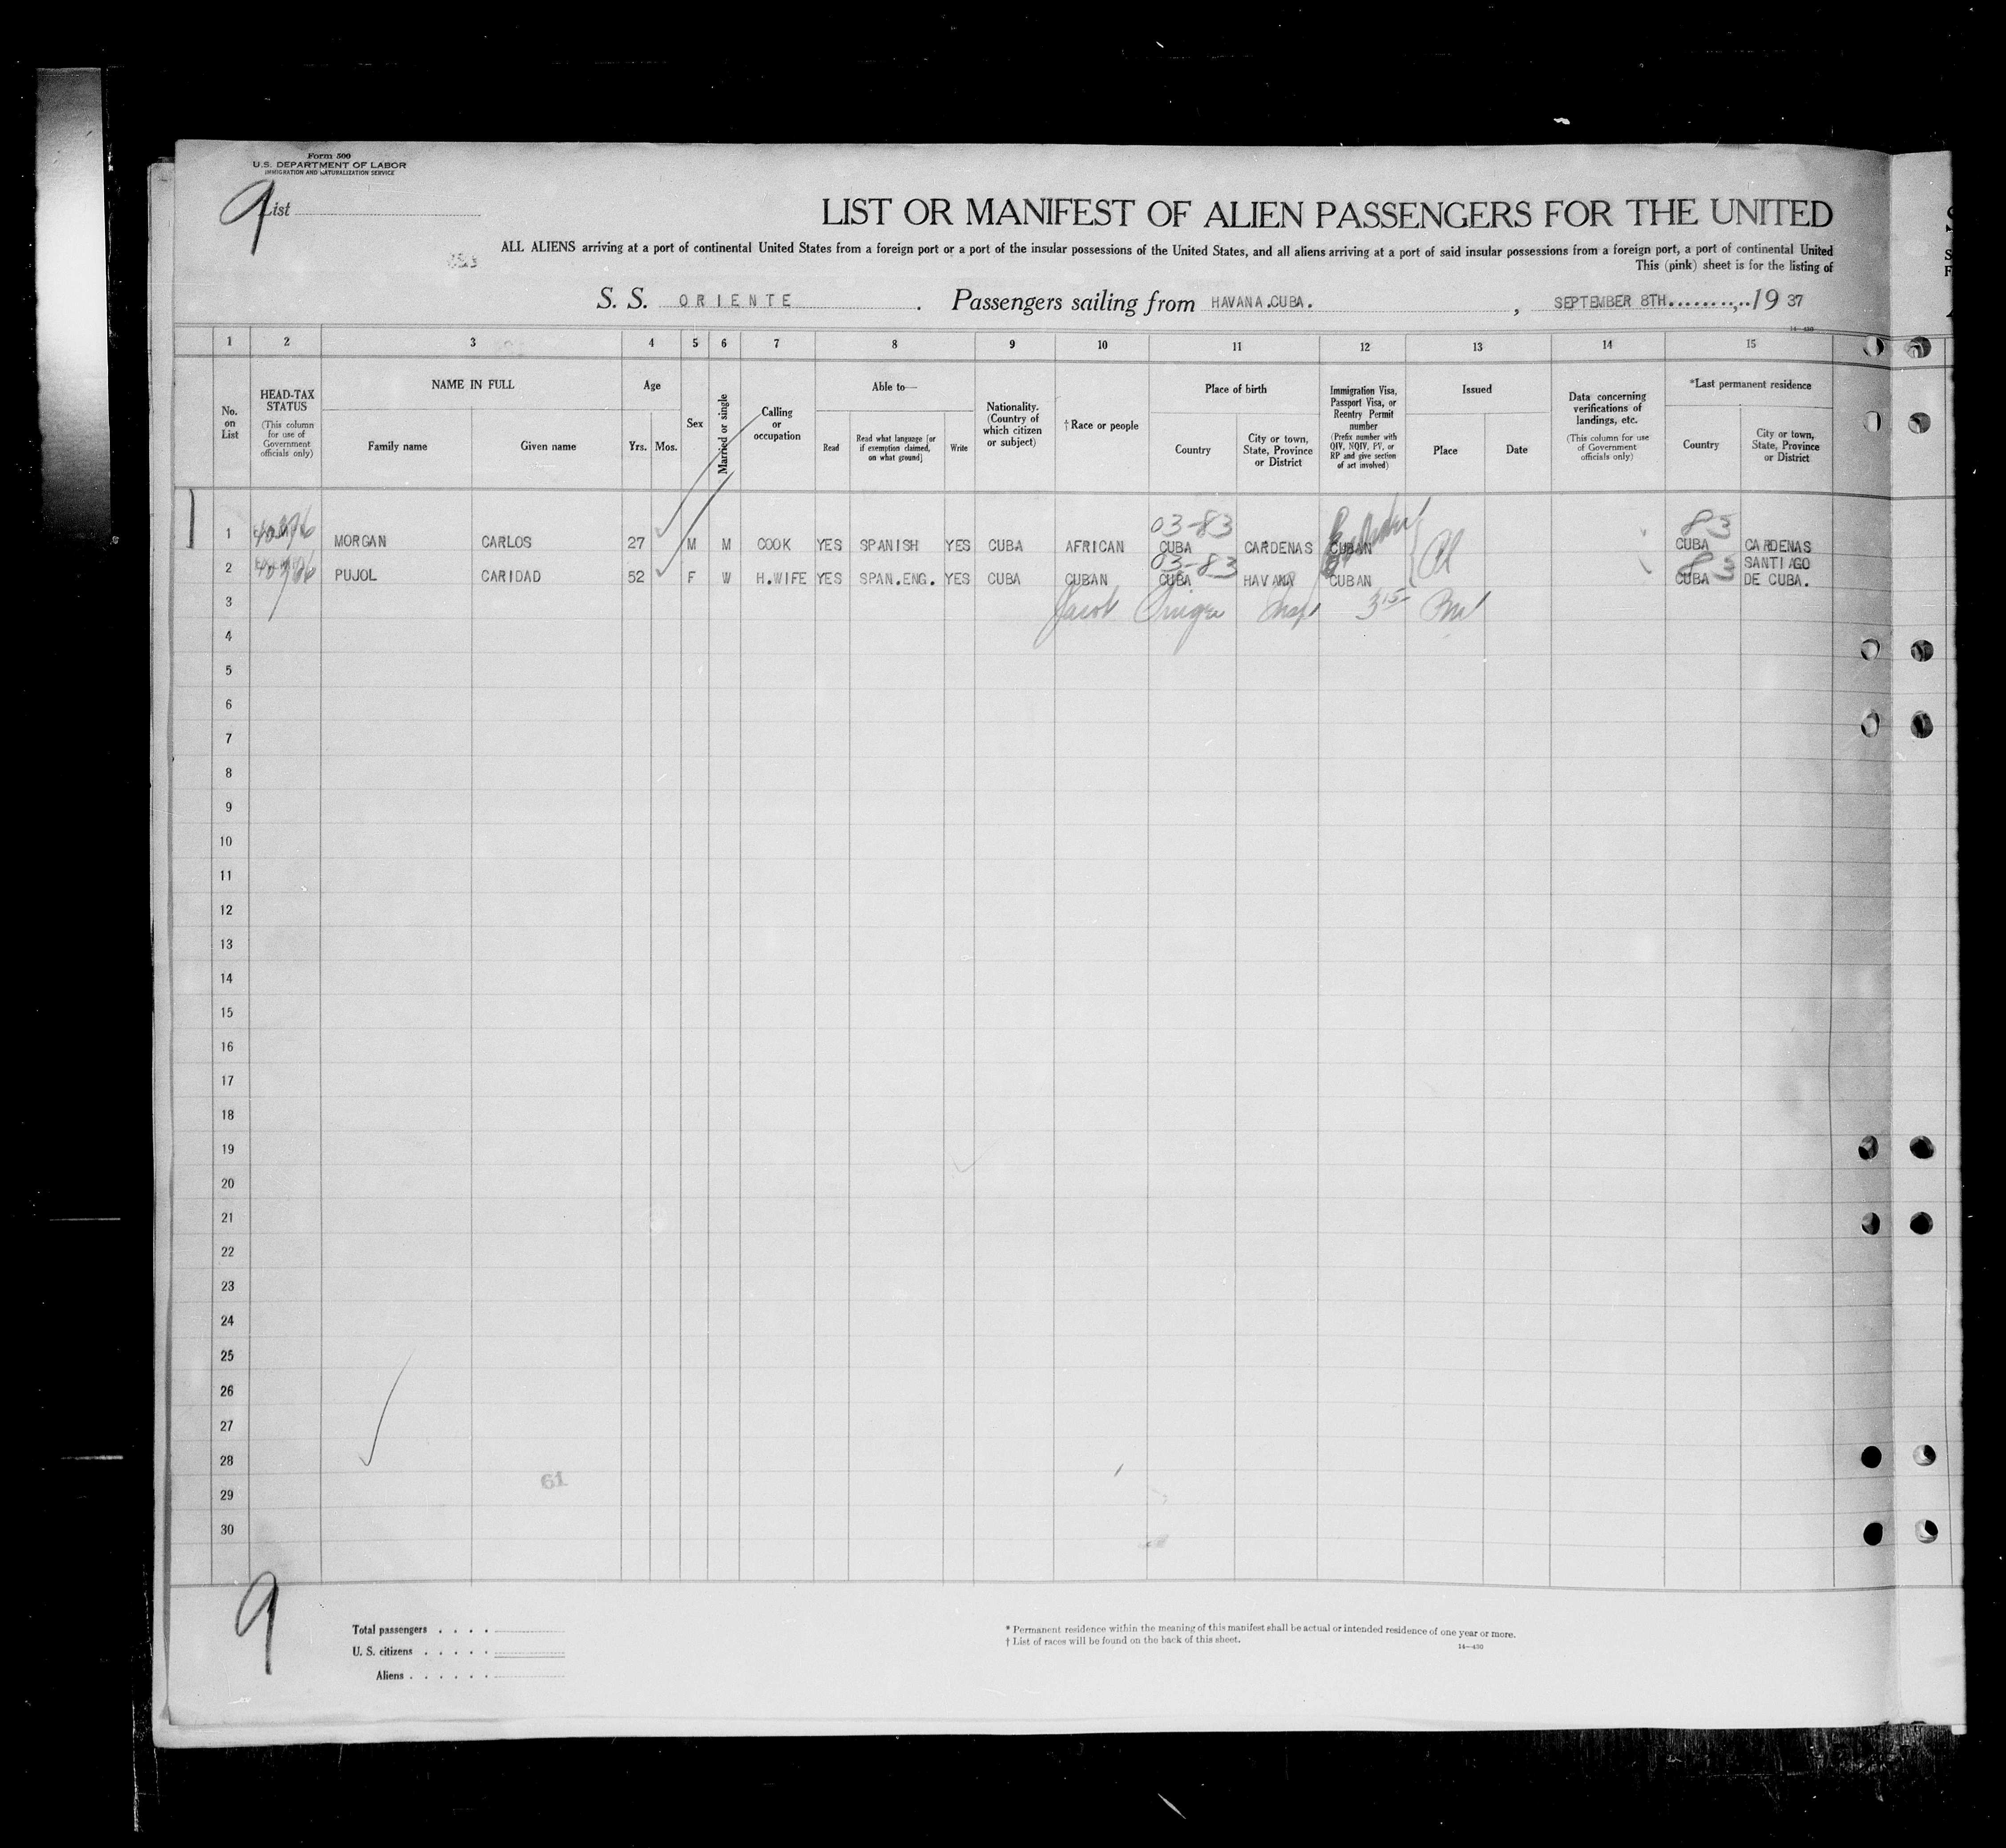 Form 500
U.S. DEPARTMENT OF LABOR
IMMIGRATION AND NATURALIZATION SERVICE
9
List
LIST OR MANIFEST OF ALIEN PASSENGERS FOR THE UNITED
ALL ALIENS arriving at a port of continental United States from a foreign port or a port of the insular possessions of the United States, and all aliens arriving at a port of said insular possessions from a foreign port, a port of continental United
This (pink) sheet is for the listing of
S. S. ORIENTE . Passengers sailing from HAVANA.CUBA. , SEPTEMBER 8TH..........,..19 37
14—430
1 2 3 4 5 6 7 8 9 10 11 12 13 14 15
No. on List
HEAD-TAX STATUS (This column for use of Government officials only)
NAME IN FULL
Family name Given name
Age
Yrs. Mos.
Sex
Married or single
Calling or occupation
Able to—
Read
Read what language [or if exemption claimed, on what ground]
Write
Nationality. (Country of which citizen or subject)
†Race or people
Place of birth
Country
City or town, State, Province or District
Immigration Visa, Passport Visa, or Reentry Permit number (Prefix number with QIV, NQIV, PV, or RP and give section of act involved)
Issued
Place Date
Data concerning verifications of landings, etc. (This column for use of Government officials only)
*Last permanent residence
Country
City or town, State, Province or District
03-83 83
1 MORGAN CARLOS 27 M M COOK YES SPANISH YES CUBA AFRICAN CUBA CARDENAS CUBAN CUBA CARDENAS
03-83 83
2 PUJOL CARIDAD 52 F W H.WIFE YES SPAN.ENG. YES CUBA CUBAN CUBA HAVANA CUBAN CUBA SANTIAGO DE CUBA.
3 Jacob Insp 3 15 PM
4
5
6
7
8
9
10
11
12
13
14
15
16
17
18
19
20
21
22
23
24
25
26
27
28
61
29
30
9
Total passengers . . . .
U. S. citizens . . . . .
Aliens . . . . . .
* Permanent residence within the meaning of this manifest shall be actual or intended residence of one year or more.
† List of races will be found on the back of this sheet.
14—430